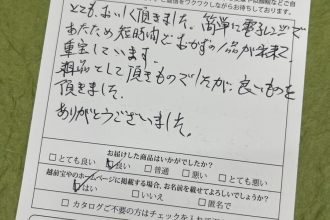 返信をワクワクしながらお待ちしております。
とてもおいしく頂きました。簡単に電子レンジで
あたため短時間でおかずの一品が出来て
重宝しています。
粗品として頂きものでしたが、良いものを
頂きました。
ありがとうございました。
お届けした商品はいかがでしたか?
□とても良い ☑良い □普通 □悪い □とても悪い
越前宝やのホームページに掲載する場合、お名前を載せてよろしいでしょうか?
☑はい □いいえ □匿名で
□カタログご不要の方はチェックを入れて